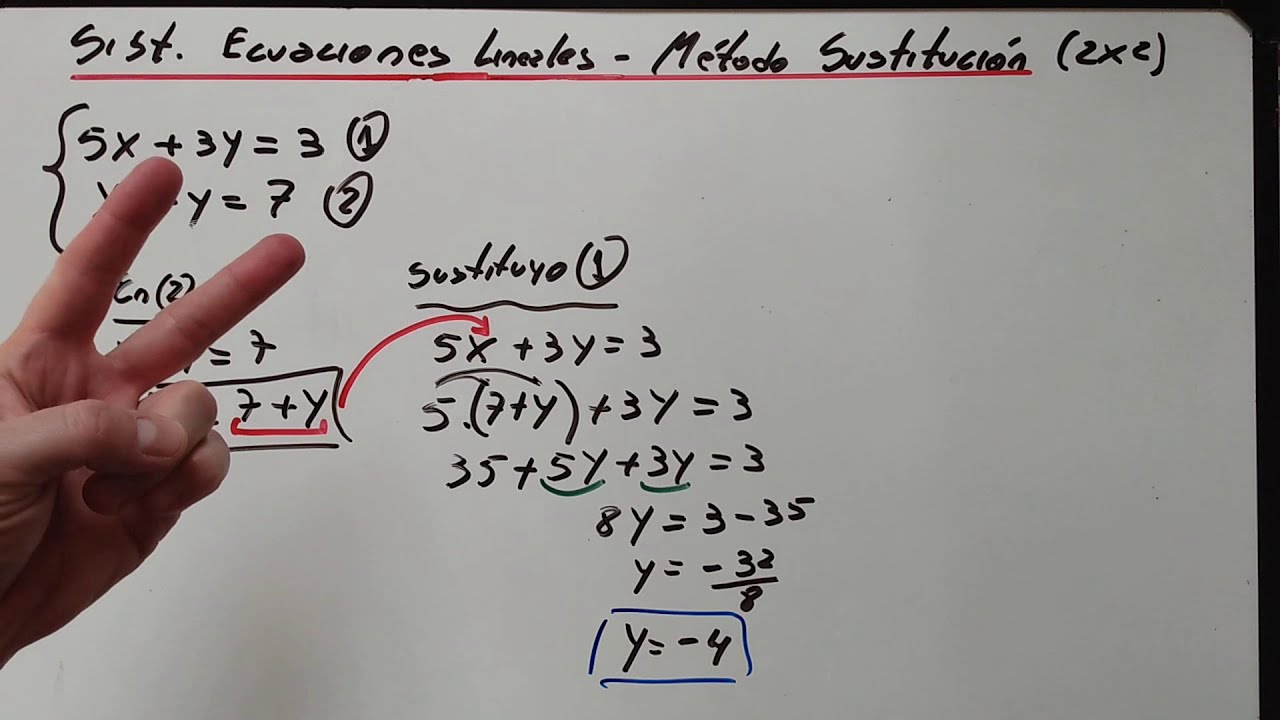 Sist. Ecuaciones Lineales - Método Sustitución (2x2)
5x + 3y = 3 ①
y = 7 ②
En (2)
= 7
7 + y
Sustituyo ①
5x + 3y = 3
5.(7+y) + 3y = 3
35 + 5y + 3y = 3
8y = 3 - 35
y = -32/8
y = -4